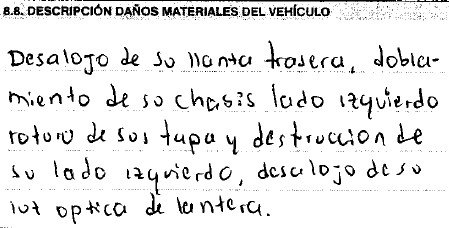 8.8. DESCRIPCIÓN DAÑOS MATERIALES DEL VEHÍCULO
Desalojo de su llanta trasera, dobla-
miento de so chasis lado izquierdo
rotura de sus tapa y destruccion de
su lado izquierdo, desalojo de su
luz optica de lantera.